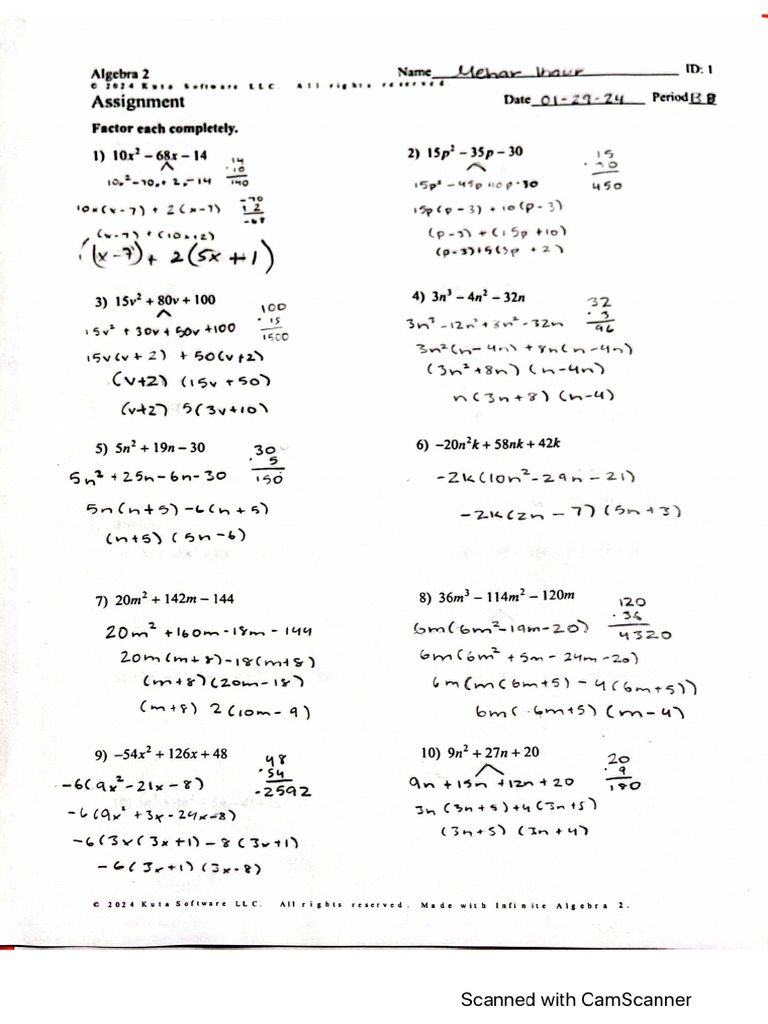 Algebra 2
Name Mehar Khaur ID: 1
© 2024 Kuta Software LLC. All rights reserved.
Assignment
Date 01-29-24 Period BB
Factor each completely.
1) 10x² − 68x − 14
14
· 10
140
10x² -70x + 2x -14
10x(x-7) + 2(x-7)
-70
+ 2
-68
(x-7) + (10x+2)
(x-7) + 2(5x+1)
2) 15p² − 35p − 30
15
· 30
450
15p² - 45p +10p - 30
15p(p-3) + 10(p-3)
(p-3) + (15p +10)
(p-3)+5(3p + 2)
3) 15v² + 80v + 100
100
· 15
1500
15v² + 30v + 50v +100
15v(v+2) + 50(v+2)
(v+2) (15v + 50)
(v+2) 5(3v+10)
4) 3n³ − 4n² − 32n
32
· 3
96
3n³ -12n² + 8n² - 32n
3n²(n-4n) + 8n(n-4n)
(3n² +8n) (n-4n)
n(3n+8) (n-4)
5) 5n² + 19n − 30
30
· 5
150
5n² + 25n - 6n - 30
5n(n+5) -6(n+5)
(n+5) (5n-6)
6) −20n²k + 58nk + 42k
-2k(10n² - 29n - 21)
-2k(2n - 7)(5n+3)
7) 20m² + 142m − 144
20m² +160m -18m - 144
20m(m+8)-18(m+8)
(m+8)(20m-18)
(m+8) 2(10m-9)
8) 36m³ − 114m² − 120m
120
· 36
4320
6m(6m²-19m-20)
6m(6m² + 5m - 24m -20)
6m(m(6m+5) - 4(6m+5))
6m( 6m+5) (m-4)
9) −54x² + 126x + 48
48
· 54
-2592
-6(9x² - 21x - 8)
-6(9x² + 3x - 24x - 8)
-6(3x(3x+1) - 8(3x+1)
-6(3x+1) (3x-8)
10) 9n² + 27n + 20
20
· 9
180
9n + 15n +12n + 20
3n(3n+5)+4(3n+5)
(3n+5) (3n+4)
© 2024 Kuta Software LLC. All rights reserved. Made with Infinite Algebra 2.
Scanned with CamScanner